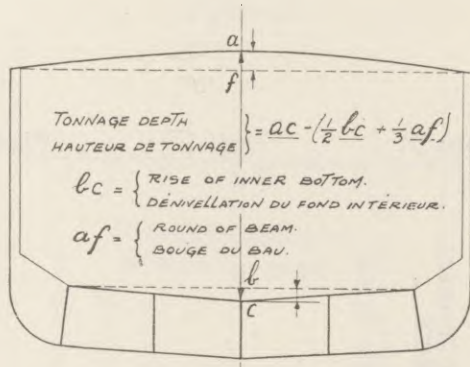 a
f
TONNAGE DEPTH
HAUTEUR DE TONNAGE } = ac - (1/2 bc + 1/3 af)
bc = { RISE OF INNER BOTTOM.
DÉNIVELLATION DU FOND INTÉRIEUR.
af = { ROUND OF BEAM.
BOUGE DU BAU.
b
c